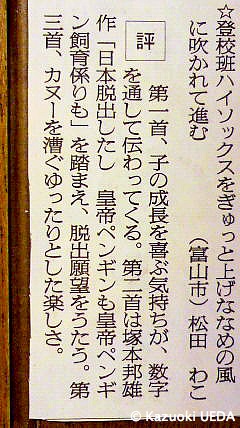 ☆登校班ハイソックスをぎゅっと上げななめの風
に吹かれて進む　　　　（富山市）松田　わこ
評　第一首、子の成長を喜ぶ気持ちが、数字
を通して伝わってくる。第二首は塚本邦雄
作「日本脱出したし　皇帝ペンギンも皇帝ペンギ
ン飼育係りも」を踏まえ、脱出願望をうたう。第
三首、カヌーを漕ぐゆったりとした楽しさ。
© Kazuoki UEDA